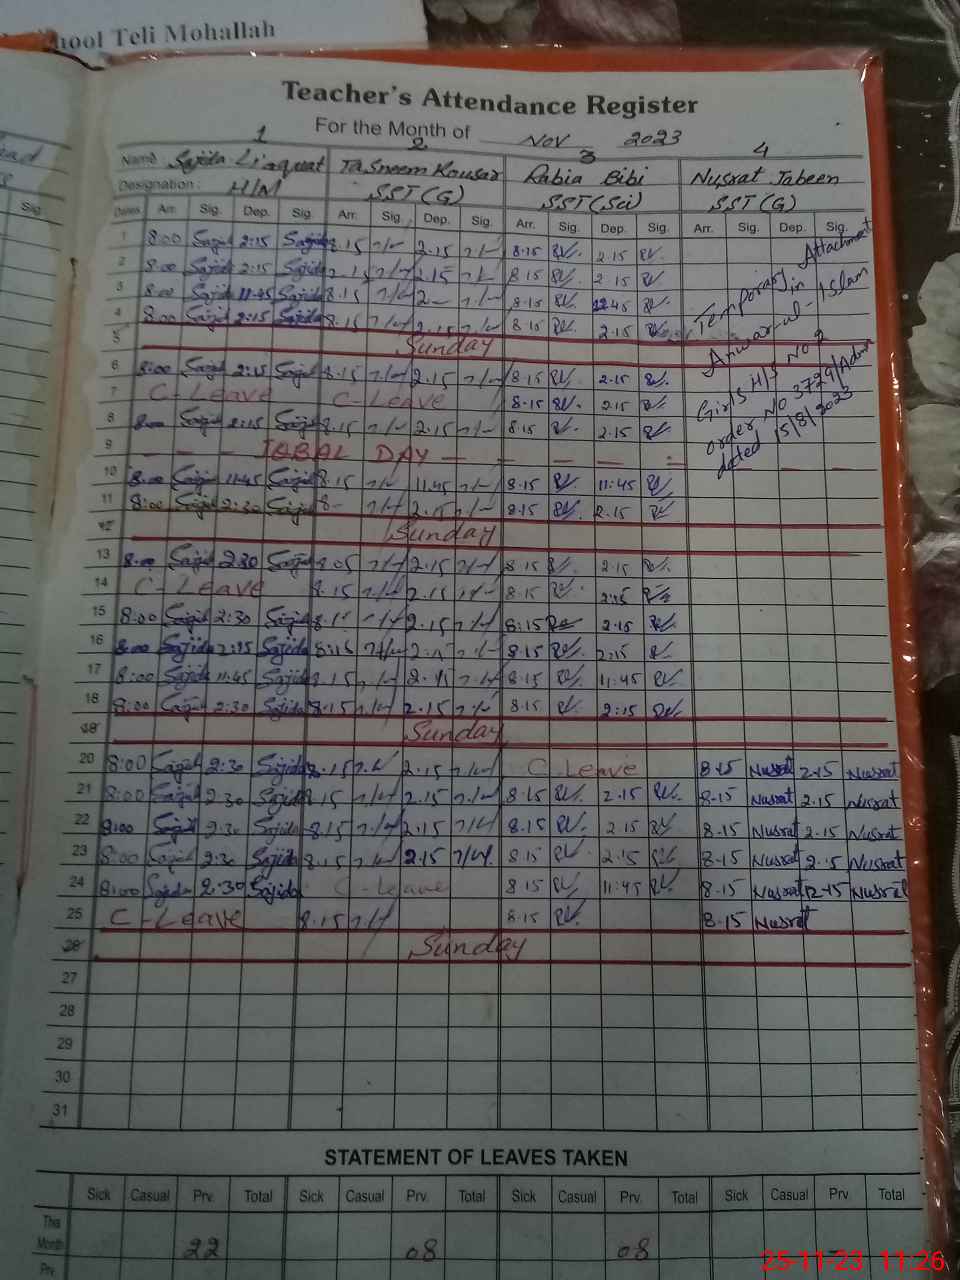 hool Teli Mohallah
ead
Sig.
Teacher's Attendance Register
For the Month of Nov 2023
1 2 3 4
Name Sajida Liaquat Tasneem Kousar Rabia Bibi Nusrat Jabeen
Designation: H/M SST(G) SST(Sci) SST(G)
Dates Arr. Sig. Dep. Sig. Arr. Sig. Dep. Sig. Arr. Sig. Dep. Sig. Arr. Sig. Dep. Sig.
1 8:00 Sajida 2:15 Sajida 8.15 2.15 8.15 2.15
2 8:00 Sajida 2:15 Sajida 2.15 8.15 2.15
3 8:00 Sajida 11:45 Sajida 8.15 8.15
4 8:00 Sajida 2:15 Sajida 8.15 2.15 8.15 2.15
Temporary Attachment
in
Anwar-ul-Islam
Girls H/S No 2
order No 3729/Admn
dated 15/8/2023
5 Sunday
6 8:00 Sajida 2:15 Sajida 8.15 2.15 8.15 2.15
7 C-Leave C-Leave 8.15 2.15
8 8:00 Sajida 2:15 Sajida 8.15 2.15 8.15 2.15
9 IQBAL DAY
10 8:00 Sajida 11:45 Sajida 8.15 11.45 8.15 11:45
11 8:00 Sajida 2:30 Sajida 2.15 8.15 2.15
12 Sunday
13 8:00 Sajida 2:30 Sajida 8.05 2.15 8.15 2.15
14 C-Leave 8.15 2.15 8.15 2:15
15 8:00 Sajida 2:30 Sajida 2.15 8:15 2.15
16 8:00 Sajida 2:15 Sajida 8:15 2.15 8.15 2:15
17 8:00 Sajida 11:45 Sajida 8.15 8.15 11:45
18 8:00 Sajida 2:30 Sajida 8.15 2.15 8.15 2:15
19 Sunday
20 8:00 Sajida 2:30 Sajida 8.15 2.15 C-Leave 8.15 Nusrat 2.15 Nusrat
21 8:00 Sajida 2:30 Sajida 8.15 2.15 8.15 2.15 8.15 Nusrat 2.15 Nusrat
22 8:00 Sajida 2:30 Sajida 8.15 2.15 8.15 2.15 8.15 Nusrat 2.15 Nusrat
23 8:00 Sajida 2:30 Sajida 8.15 2.15 8.15 2:15 8.15 Nusrat 2.15 Nusrat
24 8:00 Sajida 2:30 Sajida C-Leave 8.15 11:45 8.15 Nusrat Nusrat
25 C-Leave 8.15 8.15 8.15 Nusrat
26 Sunday
27
28
29
30
31
STATEMENT OF LEAVES TAKEN
Sick Casual Prv. Total Sick Casual Prv. Total Sick Casual Prv. Total Sick Casual Prv. Total
This
Month 22 08 08
Prv.
25-11-23 11:26